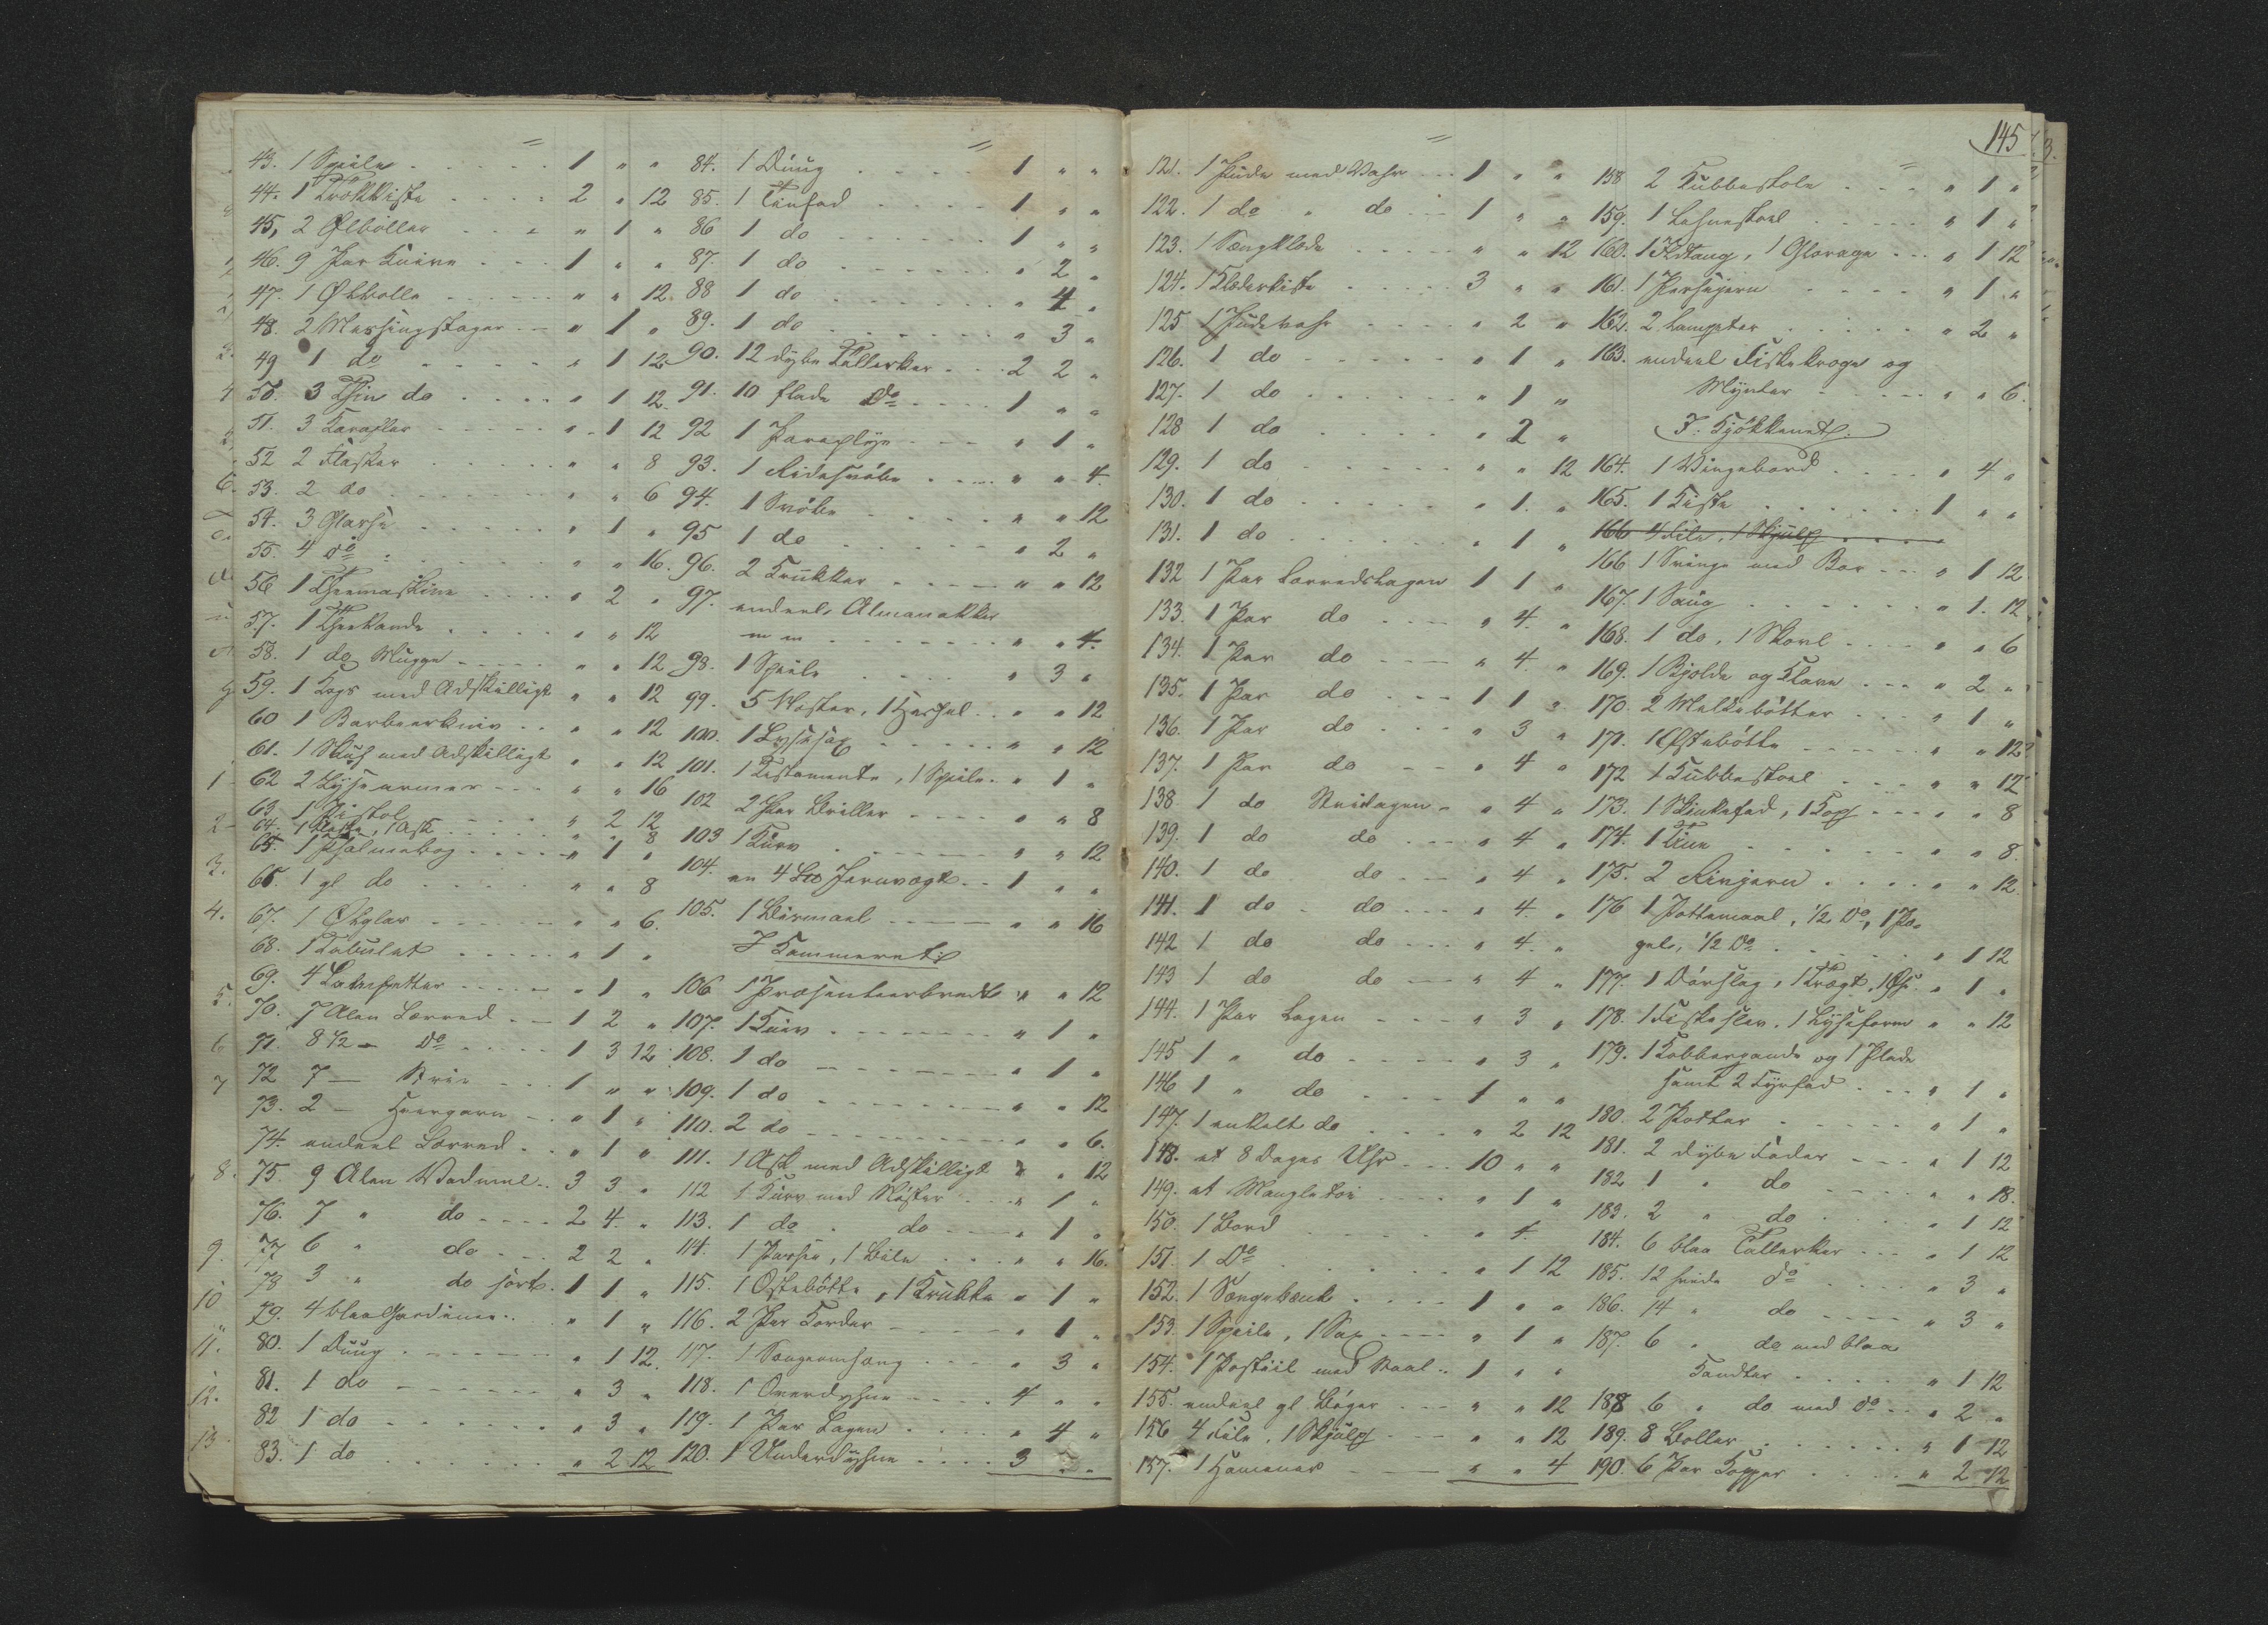 43. 1 Speile . . . . . 1 " "
44. 1 Trækkiste . . . . 2 " 12
45, 2 Ølboller . . . " 1 "
46. 9 Par Knive . . . 1 " "
47. 1 Ølbolle . . . . " " 12.
48. 2 Messingstager . . " 1 "
49 1 do . . . . . " 1 12
50. 3 Thin do . . . . " 1 12
51. 3 Karafler . . . . " 1 12
52 2 Flasker . . . . " " 8
53. 2 do . . . . . " " 6
54. 3 Glasse . . . . " 1 "
55. 4 do . . . . . " " 16.
56 1 Theemaskine . . . " 2 "
57. 1 Theekande . . . " " 12
58. 1 do Mugge . . . . " " 12
59. 1 Kops med Adskilligt " " 12
60 1 Barbeerkniv . . " " 12
61. 1 Skuf med Adskilligt " " 12
62 2 Lysearmer . . . " " 16
63 1 Pistol . . . . " 2 12
64. 1 Æske, 1 Ask . . . " " 8
65. 1 Psalmebog . . . . " 1 "
66. 1 gl do . . . . " " 8
67. 1 Ølglas . . . . " " 6.
68. 1 Tabulet . . . . " 1 "
69. 4 Lampetter . . . " 1 "
70. 7 Alen Lærred . . 1 2 "
71. 8 1/2 - Do . . . . 1 3 12
72 7 — Strie . . . 1 " "
73. 2 — Hvergarn . . " 1 "
74. endeel Lærred . . " 1 "
75. 9 Alen Vadmel . . 3 3 "
76. 7 " do . . . . 2 4. "
77 6 " do . . . 2 2 "
78 3 " do sort. 1 1 "
79. 4 blaa Gardiner . . " 1 "
80. 1 Duug . . . . " 1 12.
81. 1 do . . . . . " 3 "
82 1 do . . . . . " 3 "
83. 1 do . . . . . " 2 12
84. 1 Duug . . . . 1 " "
85. 1 Tinfad . . . . 1 " "
86 1 do . . . . . 1 " "
87. 1 do . . . . . " 2 "
88 1 do . . . . . " 4 "
89. 1 do . . . . . " 3 "
90. 12 dybe Tallerker . . . 2 2 "
91. 10 flade Do . . . . 1 " "
92 1 Paraplye . . . " 1 "
93. 1 Ridesvøbe . . . " " 4.
94. 1 Svøbe . . . . " " 12
95 1 do . . . . . " 2 "
96. 2 Krukker . . . . " " 12
97. endeel Almanakker
m m . . . . . " " 4.
98. 1 Speile . . . . " 3 "
99. 5 Æsker, 1 Hespel . . " " 12
100. 1 Lysesax . . . . " " 12
101. 1 Testamente, 1 Speile . " 1 "
102 2 Par Briller . . . " " 8
103 1 Kurv . . . . . " " 12
104. en 4 Lod Jernvægt . . 1 " "
105. 1 Bismaal . . . . " " 16
I Kammeret
106 1 Præsenteerbredt " " 12
107. 1 Kniv . . . . " 1 "
108. 1 do . . . . . " 1 "
109. 1 do . . . . . " " 12
110. 2 do . . . . . " " 6.
111. 1 Ask med Adskilligt " " 12
112 1 Kurv med Nøster . . " 1 "
113. 1 do . do . . . " 1 "
114. 1 Perse, 1 Bile . . . " " 16.
115. 1 Ostebøtte, 1 Krukke " 1 "
116. 2 Par Karder . . . " 1 "
117. 1 Sengeomhæng . . . " 3 "
118. 1 Overdyhne . . . 4 " "
119. 1 Par Lagen . . . " 4 "
120. 1 Underdyhne . . . 3 " "
145
121. 1 Pude med Vahr . . 1 " "
122. 1 do " do . . 1 " "
123. 1 Sengklæde . . . " " 12
124. 1 Klædekiste . . . 3 " "
125 1 Pudevahr . . . . " 2 "
126. 1 do . . . . . " 1 "
127. 1 do . . . . . " 1 "
128 1 do . . . . . " 2 "
129. 1 do . . . . . " " 12
130. 1 do . . . . . " 1. "
131. 1 do . . . . . " 1 "
132 1 Par Lærredslagen 1 1 "
133. 1 Par do . . . " 4. "
134. 1 Par do . . . " 4. "
135. 1 Par do . . . 1 1 "
136. 1 Par do . . . " 3 "
137. 1 Par do . . . " 4 "
138. 1 do Strilagen . " 4 "
139. 1 do do . . . " 4 "
140. 1 do do . . . " 4 "
141. 1 do - do . . . " 4. "
142 1 do do . . . " 4. "
143 1 do do . . . " 4 "
144. 1 Par Lagen . . . " 3 "
145 1 " do . . . . " 3 "
146 1 " do . . . . 1 " "
147. 1 enkelt do . . . " 2 12
148. et 8 Dages Uhr . . . 10 " "
149. et Mangletøi . . . " 1 "
150. 1 Bord . . . . " 4. "
151. 1 Do . . . . . " 1 12
152. 1 Sengebænk . . . . 1 " "
153. 1 Speile, 1 Sax . . . " 1 "
154. 1 Postiil med Staal . . 1 " "
155. endeel gl Bøger . . . " " 12
156 4 File, 1 Skjølp . . . " " 12
157. 1 Hammer . . . " " 4
158 2 Kubbestole . . . " 1 "
159. 1 Lehnestoel . . . . " 1 "
160. 1 Ildtang, 1 Glorage . . " 1 12
161. 1 Persejern . . . . " 1 "
162. 2 Lampetter . . . . " 2 "
163. endeel Fiskekroge og
Mynter . . . . " " 6.
I Kjøkkenet
164. 1 Vingebord . . . . " 4 "
165. 1 Kiste . . . . . 1 " "
166 4 File, 1 Skjølp . . . .
166 1 Svinge med Bor . . " 1 12
167. 1 Saug . . . . . " 1. 12
168. 1 do, 1 Skovl . . . " " 6
169. 1 Bjølde og Klave . . . " 2 "
170. 2 Melkebøtter . . . " 1 "
171. 1 Ostebøtte . . . . " " 12
172 1 Kubbestoel . . . " " 12
173. 1 Skinkefad, 1 Kop . . . " " 8
174. 1 Tine . . . . . " " 8.
175. 2 Rivjern . . . . " " 12
176 1 Pottemaal, 1/2 Do, 1 Pæ-
gel, 1/2 Do . . . . . " 1 12
177. 1 Dørslag, 1 Trægt, 1 Øse . " 1 "
178. 1 Fiskeslev, 1 Lyseform " " 12
179. 1 Kobberpande og 1 Plade
samt 2 Fyrfad . . . " 1 "
180. 2 Potter . . . . . " 1 "
181. 2 dybe Fader . . . " 1 12
182 1 " do . . . . " " 18.
183. 2 " do . . . . " 1 12
184. 6 blaa Tallerker . . . " 1 12
185. 12 hvide Do . . . . " 3 "
186. 14 " do . . . . " 3 "
187. 6 " do med blaa
Kandter . . . . " 1 12
188 6 " do med do . . " 2 "
189. 8 Boller . . . . . " 1 12
190. 6 Par Kopper . . . . " 2 12